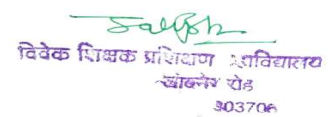 विवेक शिक्षक प्रशिक्षण महाविद्यालय
जोबनेर रोड
303706